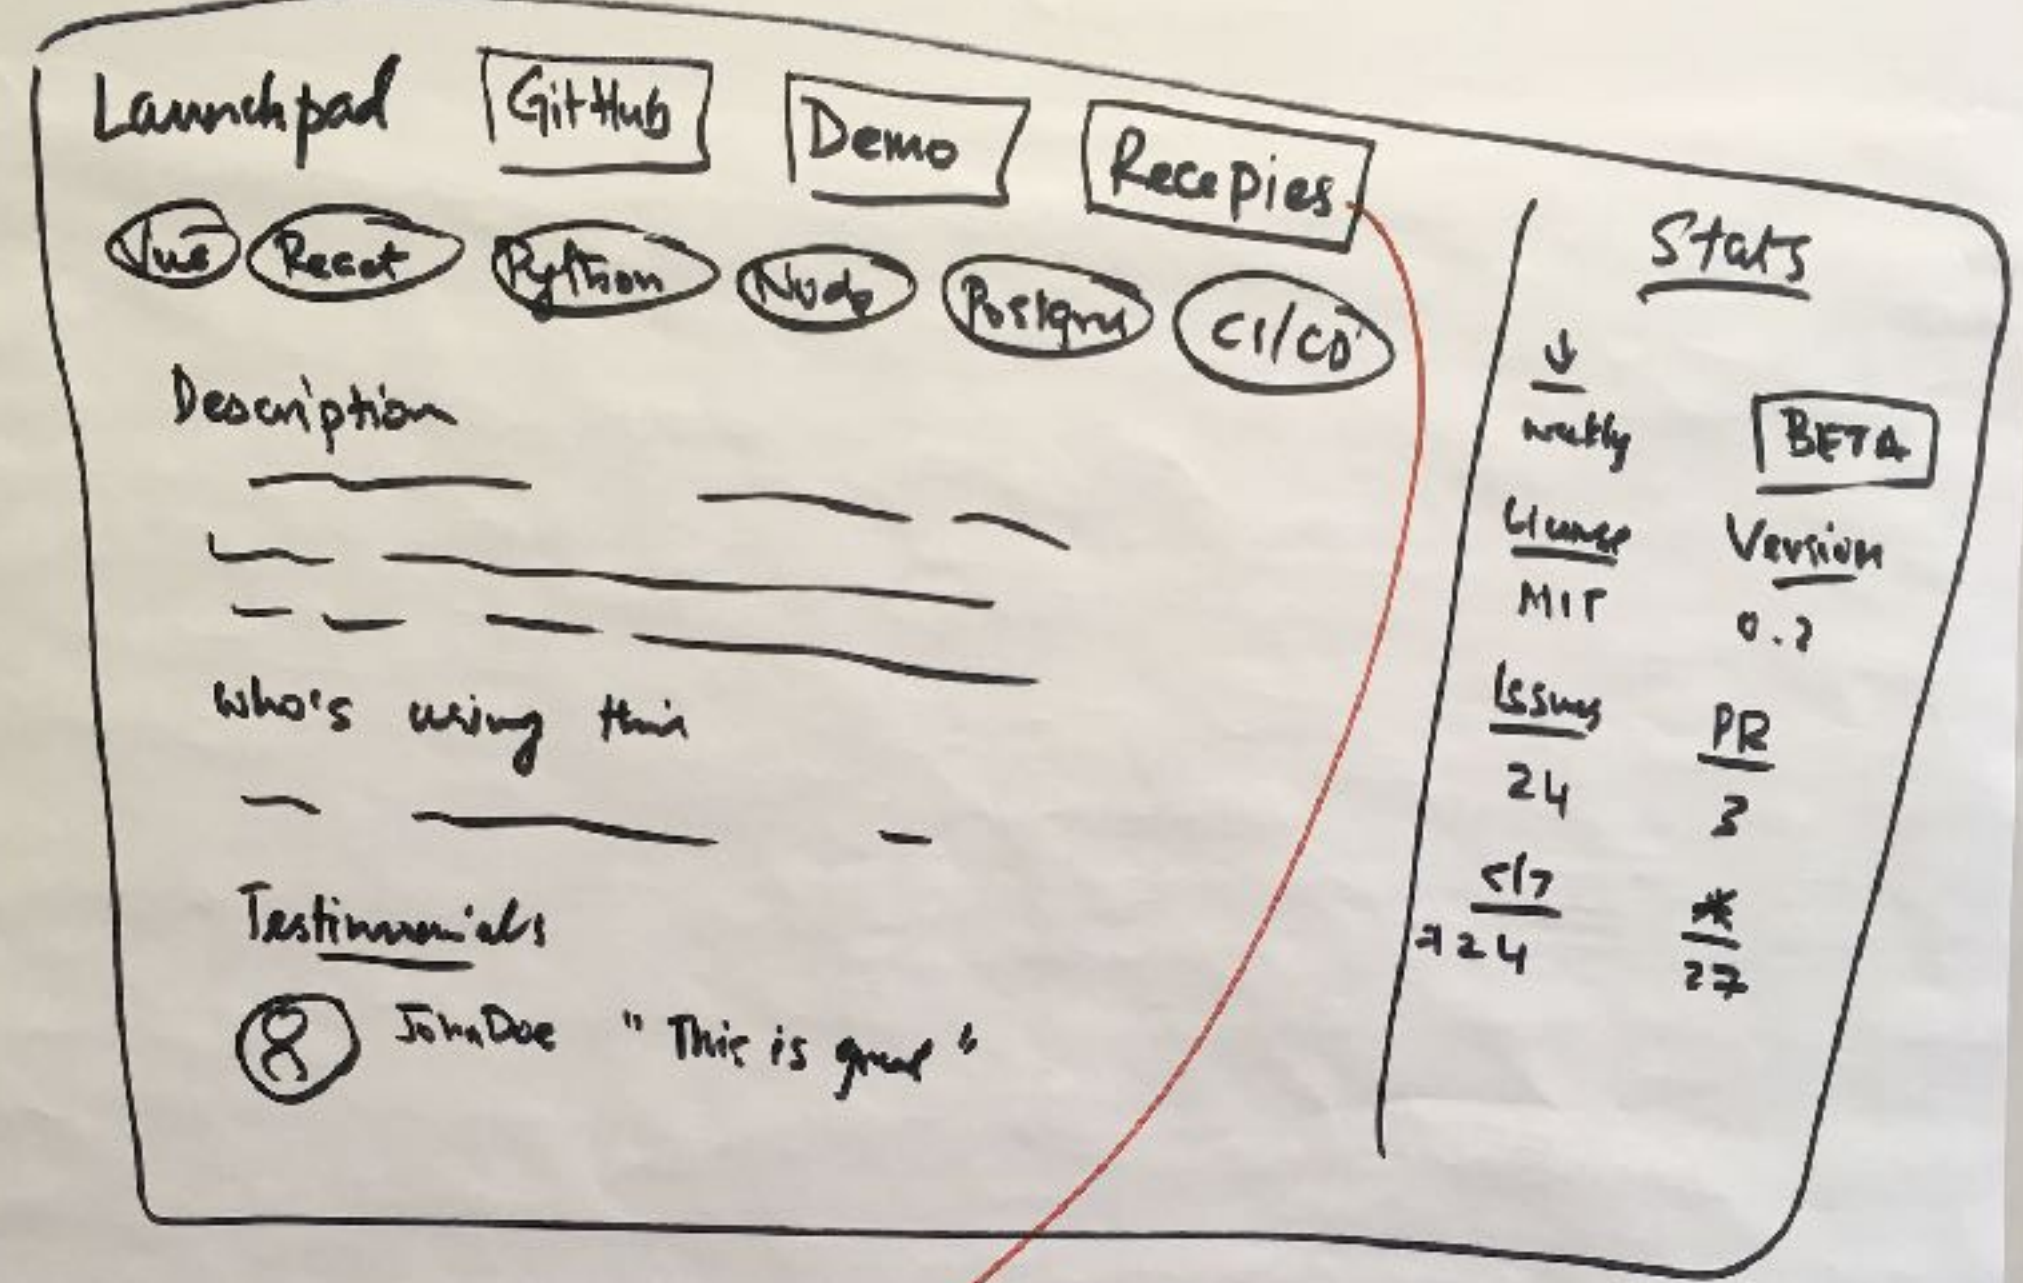 Launchpad GitHub Demo Recepies
Vue React Python Node Postgres CI/CD
Description
who's using this
Testimonials
John Doe "This is great"
Stats
↓
weekly BETA
License Version
MIT 0.2
Issues PR
24 3
</> *
724 27